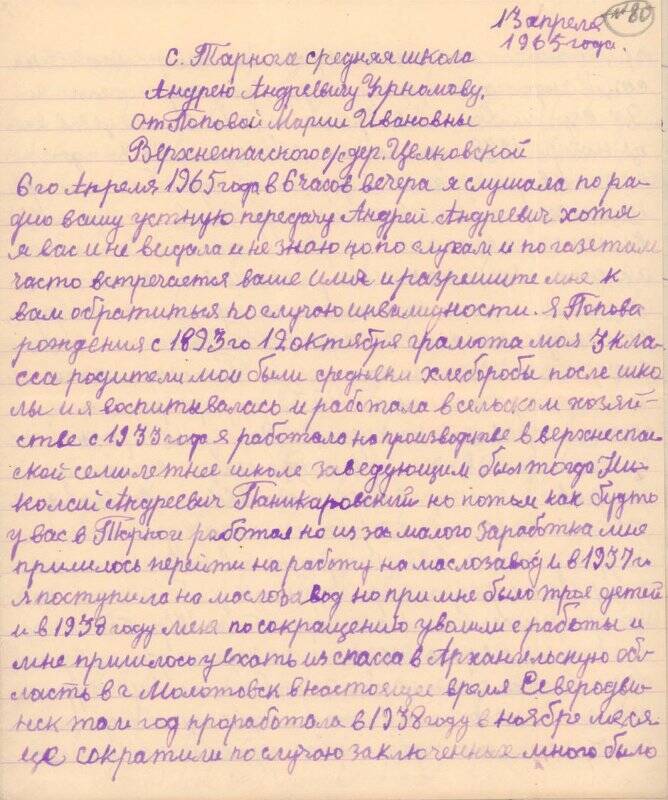 80
13 апреля
1965 года.
с. Тарнога средняя школа
Андрею Андреевичу Угрюмову.
от Поповой Марии Ивановны
Верхнеспасского с/с дер. Целковской
6 го Апреля 1965 года в 6 часов вечера я слушала по ра-
дио вашу устную передачу Андрей Андреевич хотя
я вас и не видала и не знаю но по слухам и по газетам
часто встречается ваше имя и разрешите мне к
вам обратиться по случаю инвалидности. я Попова
рождения с 1893 го 12 октября грамота моя 3 кла-
сса родители мои были средняки хлеборобы после шко
лы и я воспитывалась и работала в сельском хозяй-
стве с 1933 года я работала на производстве в верхнеспас-
ской семилетнее школе заведующим был тогда Ни-
колай Андреевич Паникаровский но потом как будто
у вас в Тарноги работал но из за малого заработка мне
пришлось перейти на работу на маслозавод и в 1937 г
я поступила на маслозавод но при мне было трое детей
и в 1938 году меня по сокращению уволили с работы и
мне пришлось уехать из спасса в Архангельскую об-
ласть в г Молотовск в настоящее время Северодви-
нск там год проработала в 1938 году в ноябре меся
це сократили по случаю заключенных много было